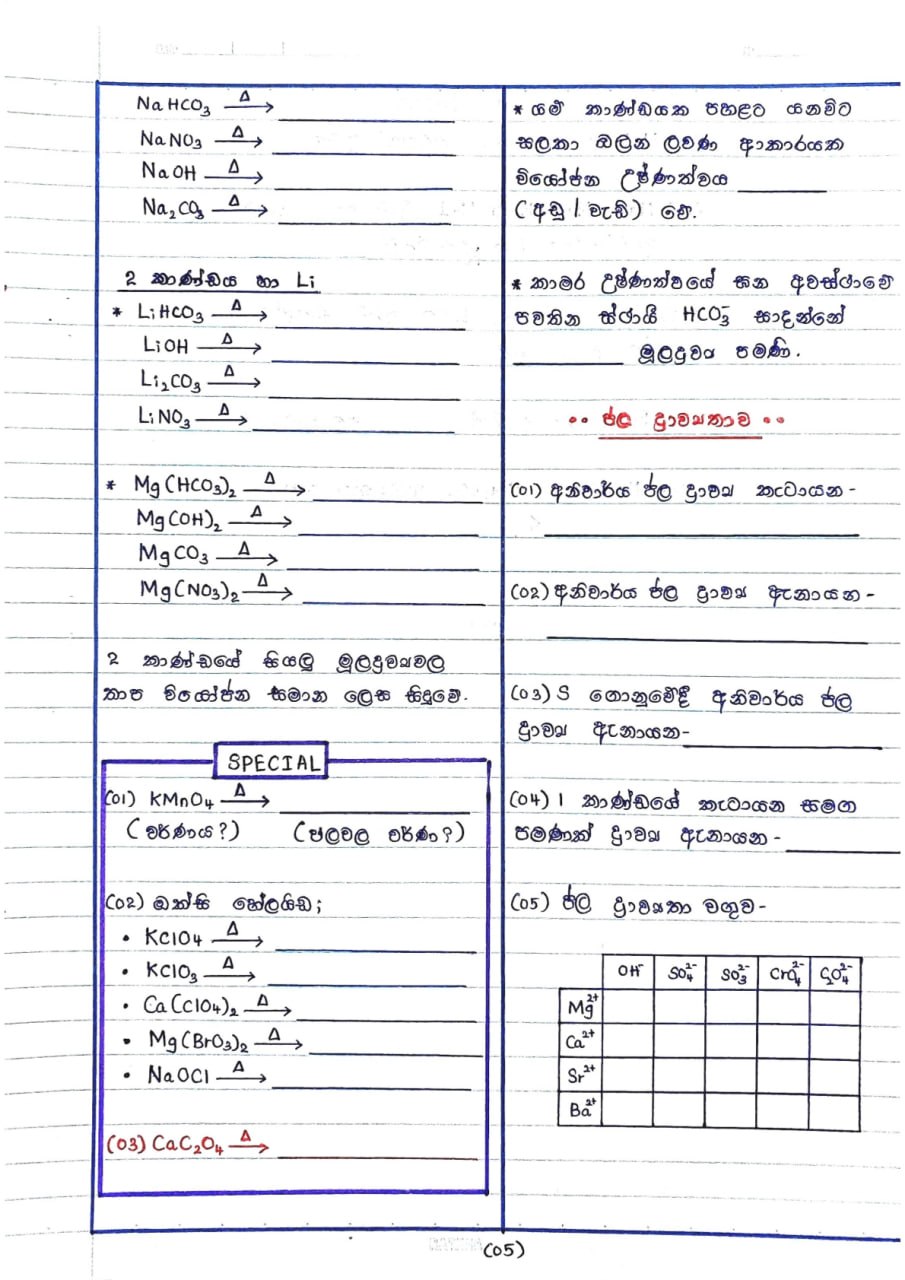 NaHCO₃ —Δ→
NaNO₃ —Δ→
NaOH —Δ→
Na₂CO₃ —Δ→
2 කාණ්ඩය හා Li
* LiHCO₃ —Δ→
LiOH —Δ→
Li₂CO₃ —Δ→
LiNO₃ —Δ→
* Mg(HCO₃)₂ —Δ→
Mg(OH)₂ —Δ→
MgCO₃ —Δ→
Mg(NO₃)₂ —Δ→
2 කාණ්ඩයේ සියලු මූලද්‍රව්‍යවල
තාප වියෝජන සමාන ලෙස සිදුවේ.
SPECIAL
(01) KMnO₄ —Δ→
(වර්ණය?) (ඵලවල වර්ණ?)
(02) ඔක්සි හේලයිඩ;
• KClO₄ —Δ→
• KClO₃ —Δ→
• Ca(ClO₄)₂ —Δ→
• Mg(BrO₃)₂ —Δ→
• NaOCl —Δ→
(03) CaC₂O₄ —Δ→
* යම් කාණ්ඩයක පහළට යනවිට
සලකා බලන ලවණ ආකාරයක
වියෝජන උෂ්ණත්වය ________
(අඩු / වැඩි) වේ.
* කාමර උෂ්ණත්වයේ ඝන අවස්ථාවේ
පවතින ස්ථායී HCO₃⁻ සාදන්නේ
________ මූලද්‍රව්‍ය පමණි.
•• ජල ද්‍රාව්‍යතාව ••
(01) අනිවාර්ය ජල ද්‍රාව්‍ය කැටායන -
(02) අනිවාර්ය ජල ද්‍රාව්‍ය ඇනායන -
(03) S ගොනුවේදී අනිවාර්ය ජල
ද්‍රාව්‍ය ඇනායන-
(04) 1 කාණ්ඩයේ කැටායන සමග
පමණක් ද්‍රාව්‍ය ඇනායන -
(05) ජල ද්‍රාව්‍යතා වගුව-
OH⁻ SO₄²⁻ SO₃²⁻ CrO₄²⁻ C₂O₄²⁻
Mg²⁺
Ca²⁺
Sr²⁺
Ba²⁺
(05)